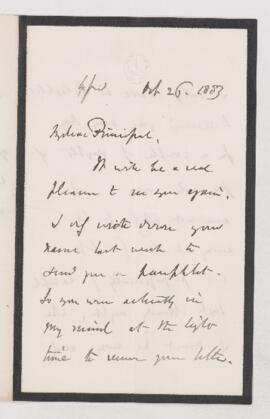 Oct 26. 1883
My dear Principal,
It will be a real
pleasure to see you again.
I only wrote down your
name last week to
send you a pamphlet.
So you were actually in
my mind at the
time to receive your letter.